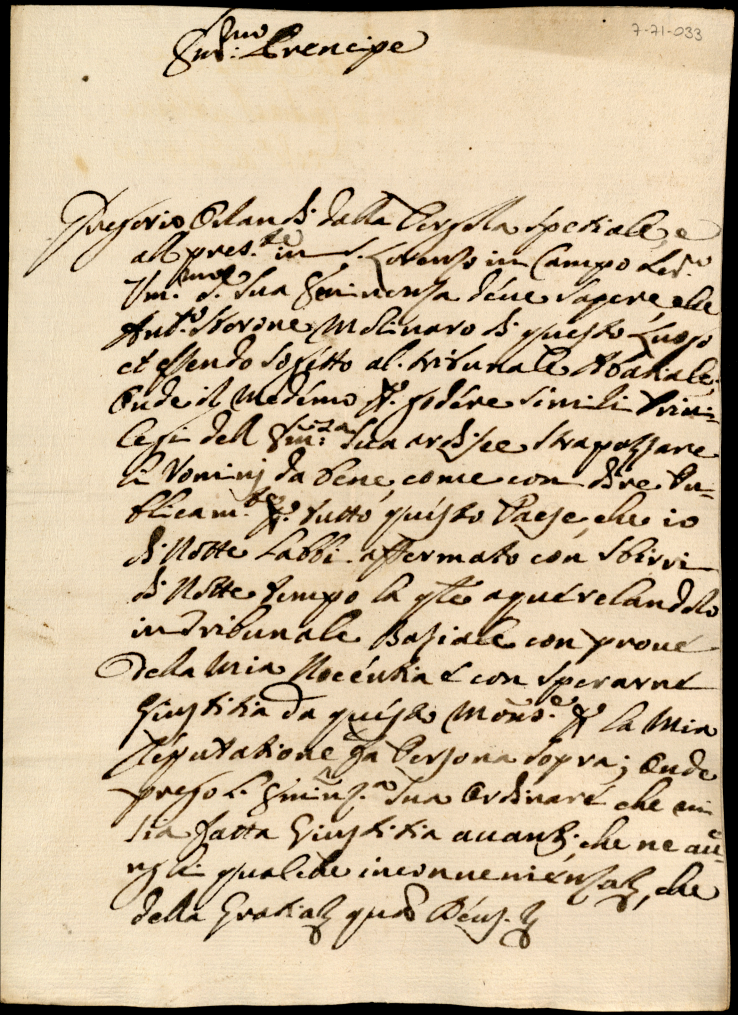 7-71-033
Em.mo Prencipe
Gregorio Orlandi dalla Pergola spetiale, e
al pres.te in S. Lorenzo in Campo Ser.e
Um.mo d. Sua Eminenza deue sapere che
Ant.o Sterone Molinaro di questo Luogo
et essendo sogetto al tribunale Abatiale,
Onde il medemo p. godere simili Priui-
legi dell Em.za Sua ardisce strapazzare
li Uomini da bene, come con dire Pu-
blicam.te p. tutto questo Paese, che io
di Notte l'abbi affermato con sbirri
di Notte tempo la qle aquerelandolo
in Tribunale Baziale con proue
della mia Nocentia e con sperarne
Giustitia da questo Mons.e p. la mia
Reputatione fa Persona sopra; Onde
prego l. Eminz.a Sua Ordinare che mi
sia fatta Giustitia auanti, che ne au-
enghi qualche inconuenienza, che
della Gratia quas Deus.